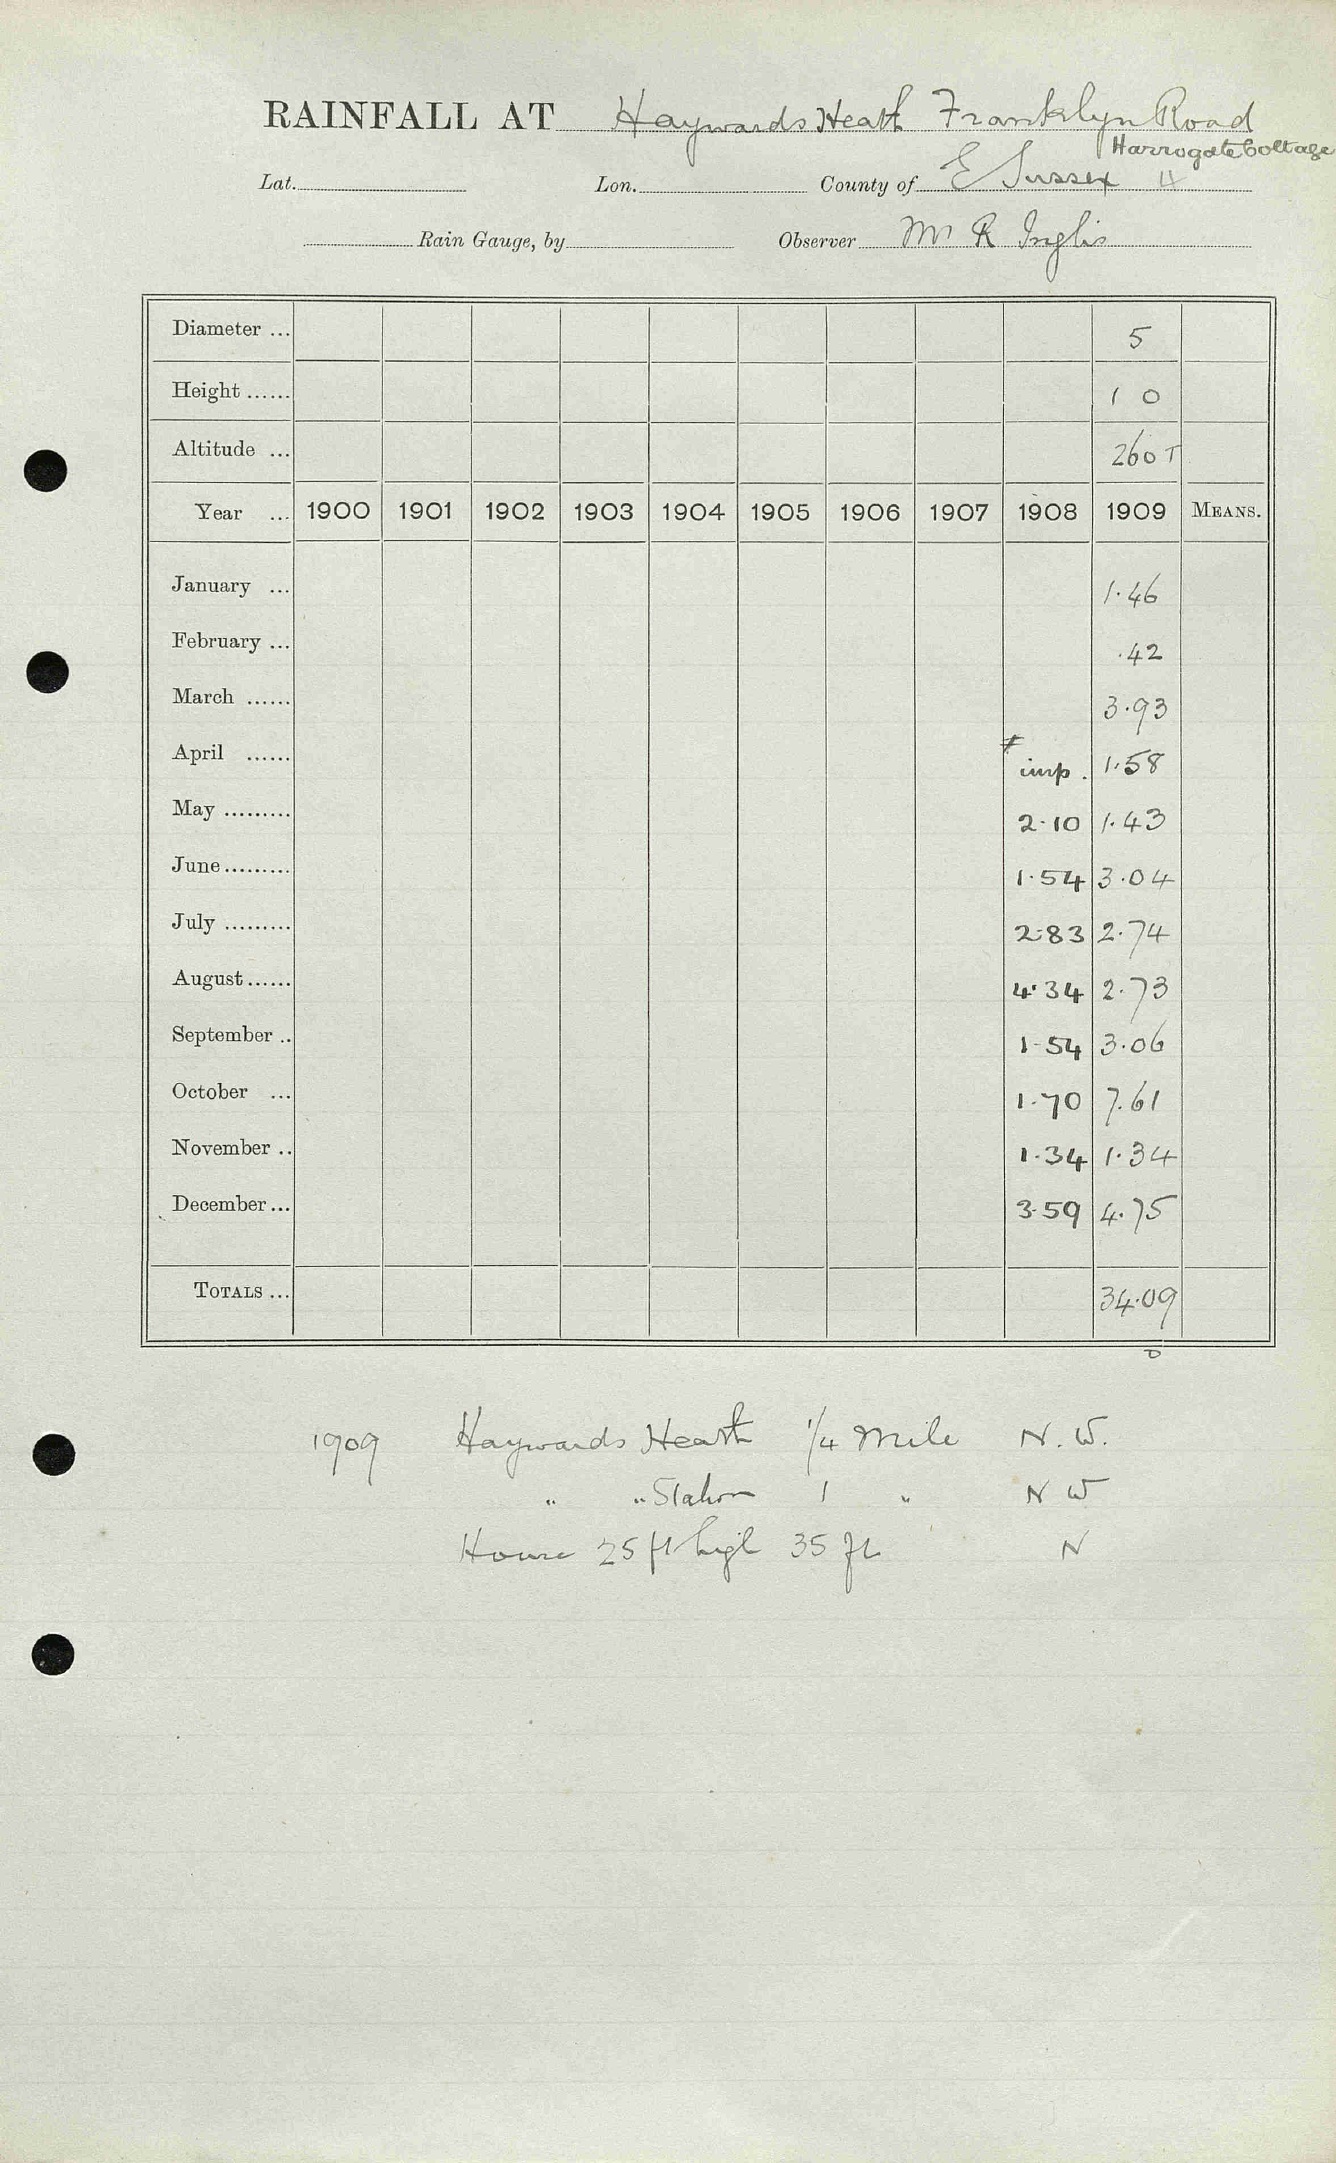 RAINFALL AT Haywards Heath Franklyn Road
Harrogate Cottage
Lat. Lon. County of E Sussex 4
Rain Gauge, by Observer Mr R Inglis
Diameter ... 5
Height ...... 1 0
Altitude ... 260 T
Year ... 1900 1901 1902 1903 1904 1905 1906 1907 1908 1909 MEANS.
January ... 1.46
February ... .42
March ...... 3.93
April ...... imp. 1.58
May ......... 2.10 1.43
June ......... 1.54 3.04
July ......... 2.83 2.74
August ...... 4.34 2.73
September .. 1.54 3.06
October ... 1.70 7.61
November .. 1.34 1.34
December ... 3.59 4.75
TOTALS ... 34.09
D
1909 Haywards Heath 1/4 Mile N.W.
" " Station 1 " N W
House 25 ft high 35 ft N